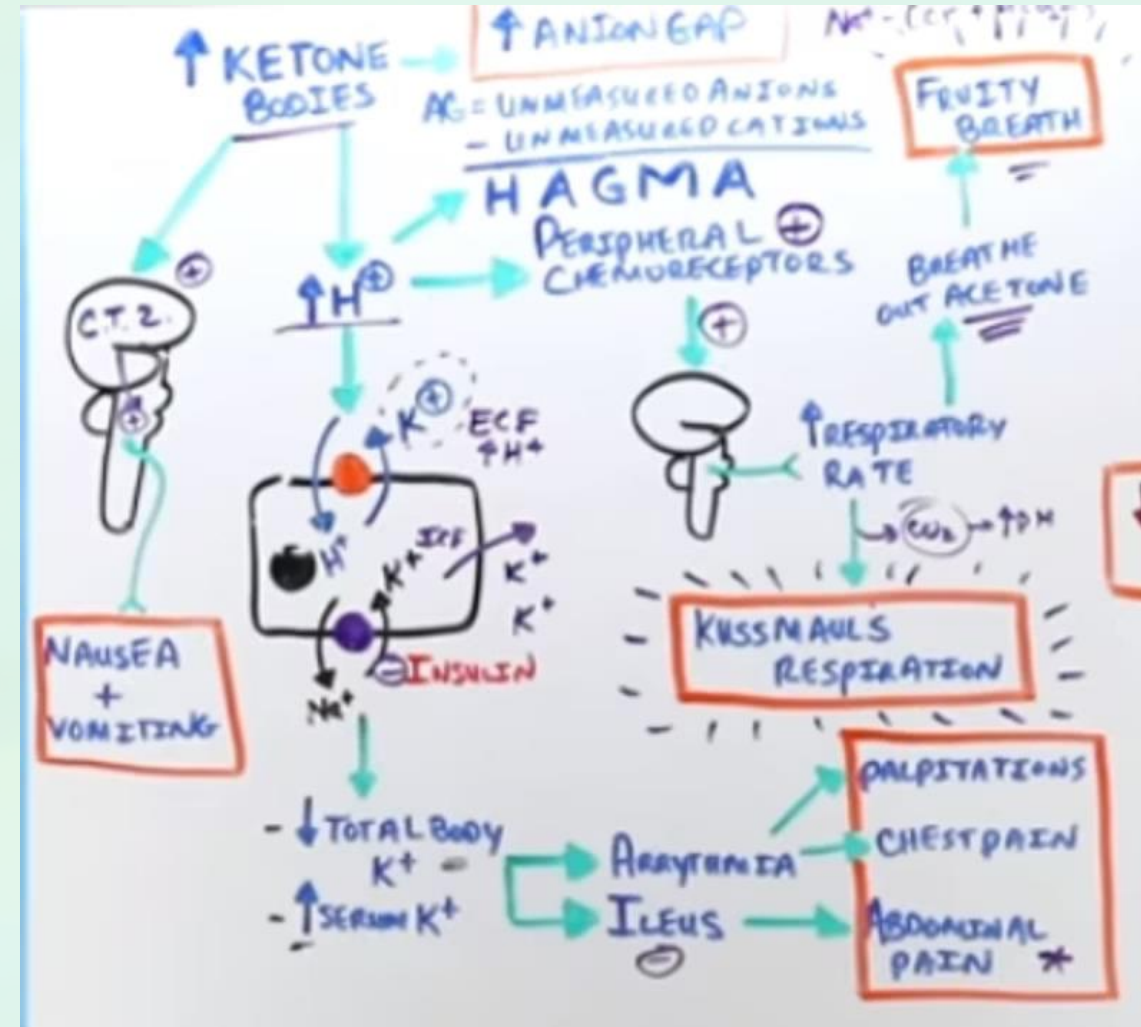 ↑ KETONE
BODIES
↑ ANION GAP
AG = UNMEASURED ANIONS
- UNMEASURED CATIONS
HAGMA
FRUITY
BREATH
BREATHE
OUT ACETONE
PERIPHERAL ⊕
CHEMORECEPTORS
↑H⊕
⊕
C.T.Z.
⊕
⊕
K⊕
ECF
↑H+
H+
ICF
K+
K+
K+
⊖INSULIN
Na+
↑RESPIRATORY
RATE
CO2 → ↑pH
KUSSMAULS
RESPIRATION
NAUSEA
+
VOMITING
- ↓ TOTAL BODY
K+
- ↑ SERUM K+
ARRYTHMIA
ILEUS
⊖
PALPITATIONS
CHEST PAIN
ABDOMINAL
PAIN *